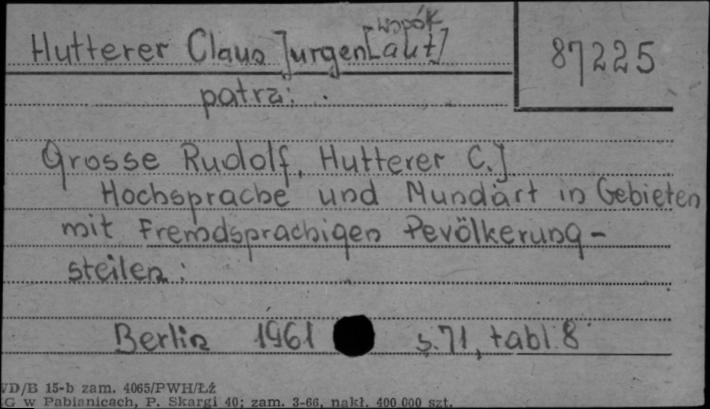 Hutterer Claus Jurgen [współ. aut]
87225
patrz:
Grosse Rudolf, Hutterer C. J
Hochsprache und Mundart in Gebieten
mit fremdsprachigen Pevölkerung-
steilen:
Berlin 1961 s. 71, tabl. 8
VD/B 15-b zam. 4065/PWH/Łź
G w Pabianicach, P. Skargi 40; zam. 3-66, nakł. 400 000 szt.